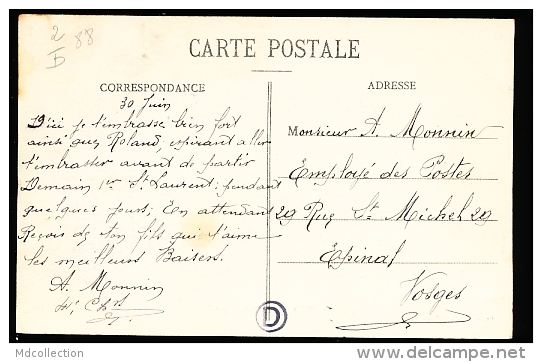 2
B 88
CARTE POSTALE
CORRESPONDANCE
ADRESSE
30 Juin
D'ici je t'embrasse bien fort
ainsi que Roland, espérant aller
t'embrasser avant de partir
Demain 1er St Laurent: pendant
quelques jours; En attendant
Reçois de ton fils qui t'aime
les meilleurs Baisers.
A. Monnin
Monsieur A. Monnin
Employé des Postes
29 Rue St Michel 29
Epinal
Vosges
D
Mdcollection
http://www.delcampe.net